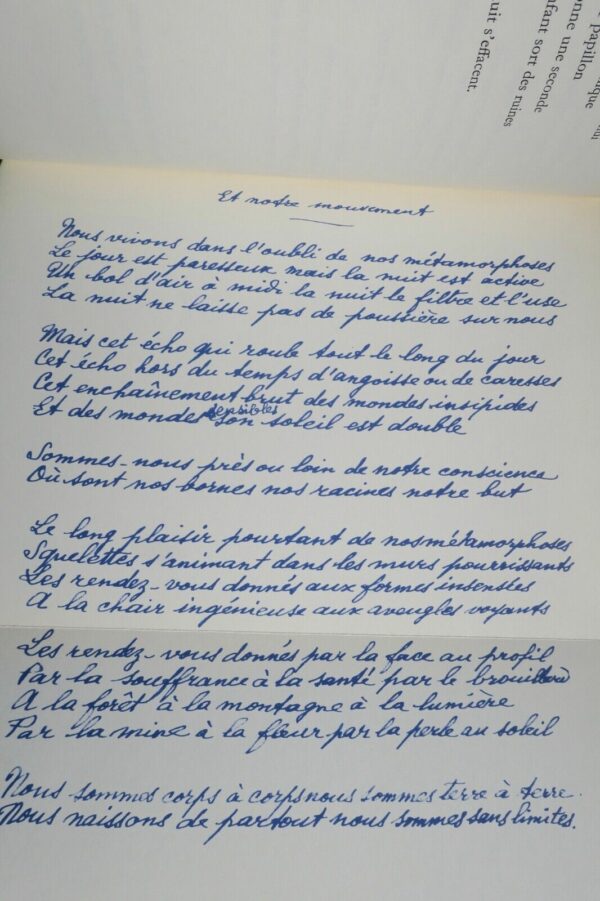 papillon
onne une seconde
fant sort des ruines
uit s'effacent.
Et notre mouvement
Nous vivons dans l'oubli de nos métamorphoses
Le jour est paresseux mais la nuit est active
Un bol d'air à midi la nuit le filtre et l'use
La nuit ne laisse pas de poussière sur nous
Mais cet écho qui roule tout le long du jour
Cet écho hors du temps d'angoisse ou de caresses
Cet enchaînement brut des mondes insipides
Et des mondes sensibles son soleil est double
Sommes-nous près ou loin de notre conscience
Où sont nos bornes nos racines notre but
Le long plaisir pourtant de nos métamorphoses
Squelettes s'animant dans les murs pourrissants
Les rendez-vous donnés aux formes insensées
A la chair ingénieuse aux aveugles voyants
Les rendez-vous donnés par la face au profil
Par la souffrance à la santé par le brouillard
A la forêt à la montagne à la lumière
Par la mine à la fleur par la perle au soleil
Nous sommes corps à corps nous sommes terre à terre.
Nous naissons de partout nous sommes sans limites.